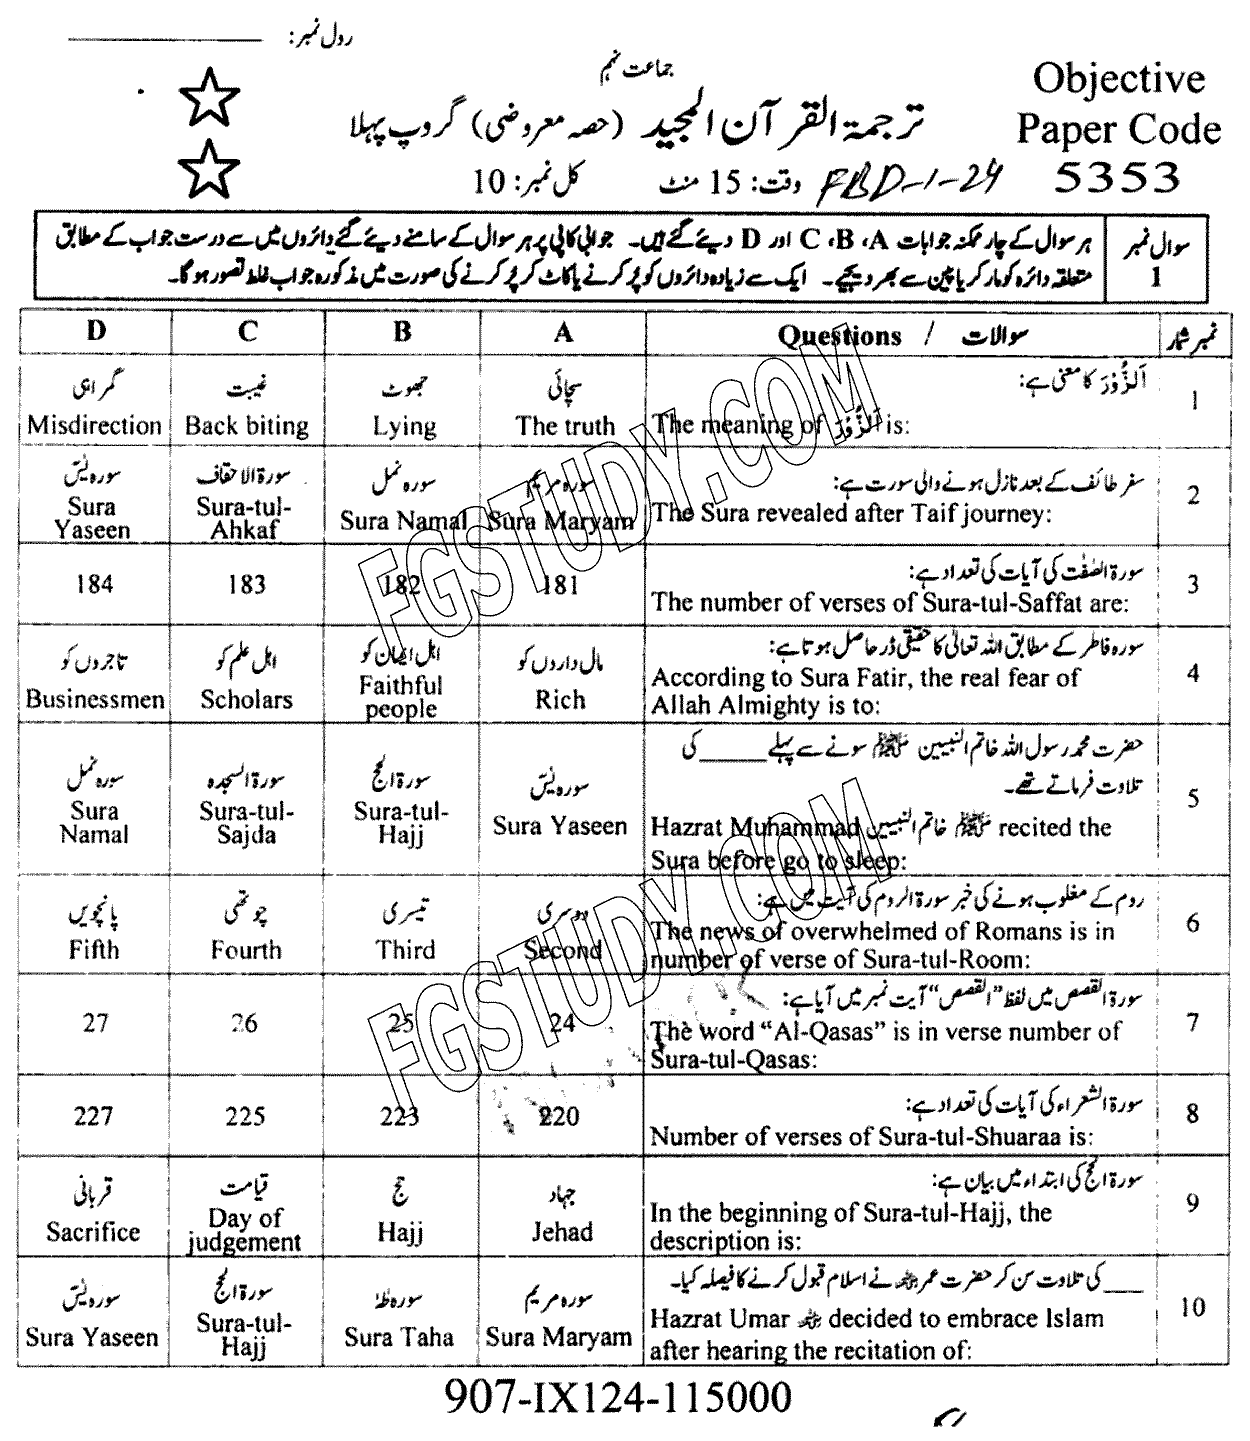 رول نمبر: ____________
جماعت نہم
Objective
Paper Code
5353
ترجمۃ القرآن المجید (حصہ معروضی) گروپ پہلا
وقت: 15 منٹ کل نمبر: 10
FBD-1-24
سوال نمبر 1
ہر سوال کے چار ممکنہ جوابات A، B، C اور D دیئے گئے ہیں۔ جوابی کاپی پر ہر سوال کے سامنے دیئے گئے دائروں میں سے درست جواب کے مطابق
متعلقہ دائرہ کو مارکر یا پین سے بھر دیجیے۔ ایک سے زیادہ دائروں کو پُر کرنے یا کاٹ کر پُر کرنے کی صورت میں مذکورہ جواب غلط تصور ہوگا۔
نمبر شمار سوالات / Questions A B C D
1 اَلزُّوْرَ کا معنی ہے:
The meaning of اَلزُّوْرَ is:
سچائی جھوٹ غیبت گمراہی
The truth Lying Back biting Misdirection
2 سفر طائف کے بعد نازل ہونے والی سورت ہے:
The Sura revealed after Taif journey:
سورہ مریم سورہ نمل سورۃ الاحقاف سورہ یٰسٓ
Sura Maryam Sura Namal Sura-tul-Ahkaf Sura Yaseen
3 سورۃ الصّٰفّٰت کی آیات کی تعداد ہے:
The number of verses of Sura-tul-Saffat are:
181 182 183 184
4 سورہ فاطر کے مطابق اللہ تعالیٰ کا حقیقی ڈر حاصل ہوتا ہے:
According to Sura Fatir, the real fear of
Allah Almighty is to:
مال داروں کو اہل ایمان کو اہل علم کو تاجروں کو
Rich Faithful people Scholars Businessmen
5 حضرت محمد رسول اللہ خاتم النبیین ﷺ سونے سے پہلے ______ کی
تلاوت فرماتے تھے۔
Hazrat Muhammad خاتم النبیین ﷺ recited the
Sura before go to sleep:
سورہ یٰسٓ سورۃ الحج سورۃ السجدہ سورہ نمل
Sura Yaseen Sura-tul-Hajj Sura-tul-Sajda Sura Namal
6 روم کے مغلوب ہونے کی خبر سورۃ الروم کی آیت میں ہے:
The news of overwhelmed of Romans is in
number of verse of Sura-tul-Room:
دوسری تیسری چوتھی پانچویں
Second Third Fourth Fifth
7 سورۃ القصص میں لفظ "القصص" آیت نمبر میں آیا ہے:
The word “Al-Qasas” is in verse number of
Sura-tul-Qasas:
24 25 26 27
8 سورۃ الشعراء کی آیات کی تعداد ہے:
Number of verses of Sura-tul-Shuaraa is:
220 223 225 227
9 سورۃ الحج کی ابتداء میں بیان ہے:
In the beginning of Sura-tul-Hajj, the
description is:
جہاد حج قیامت قربانی
Jehad Hajj Day of judgement Sacrifice
10 ____ کی تلاوت سن کر حضرت عمر رضی اللہ عنہ نے اسلام قبول کرنے کا فیصلہ کیا۔
Hazrat Umar رضی اللہ عنہ decided to embrace Islam
after hearing the recitation of:
سورہ مریم سورہ طٰہٰ سورۃ الحج سورہ یٰسٓ
Sura Maryam Sura Taha Sura-tul-Hajj Sura Yaseen
FGSTUDY.COM
FGSTUDY.COM
907-IX124-115000